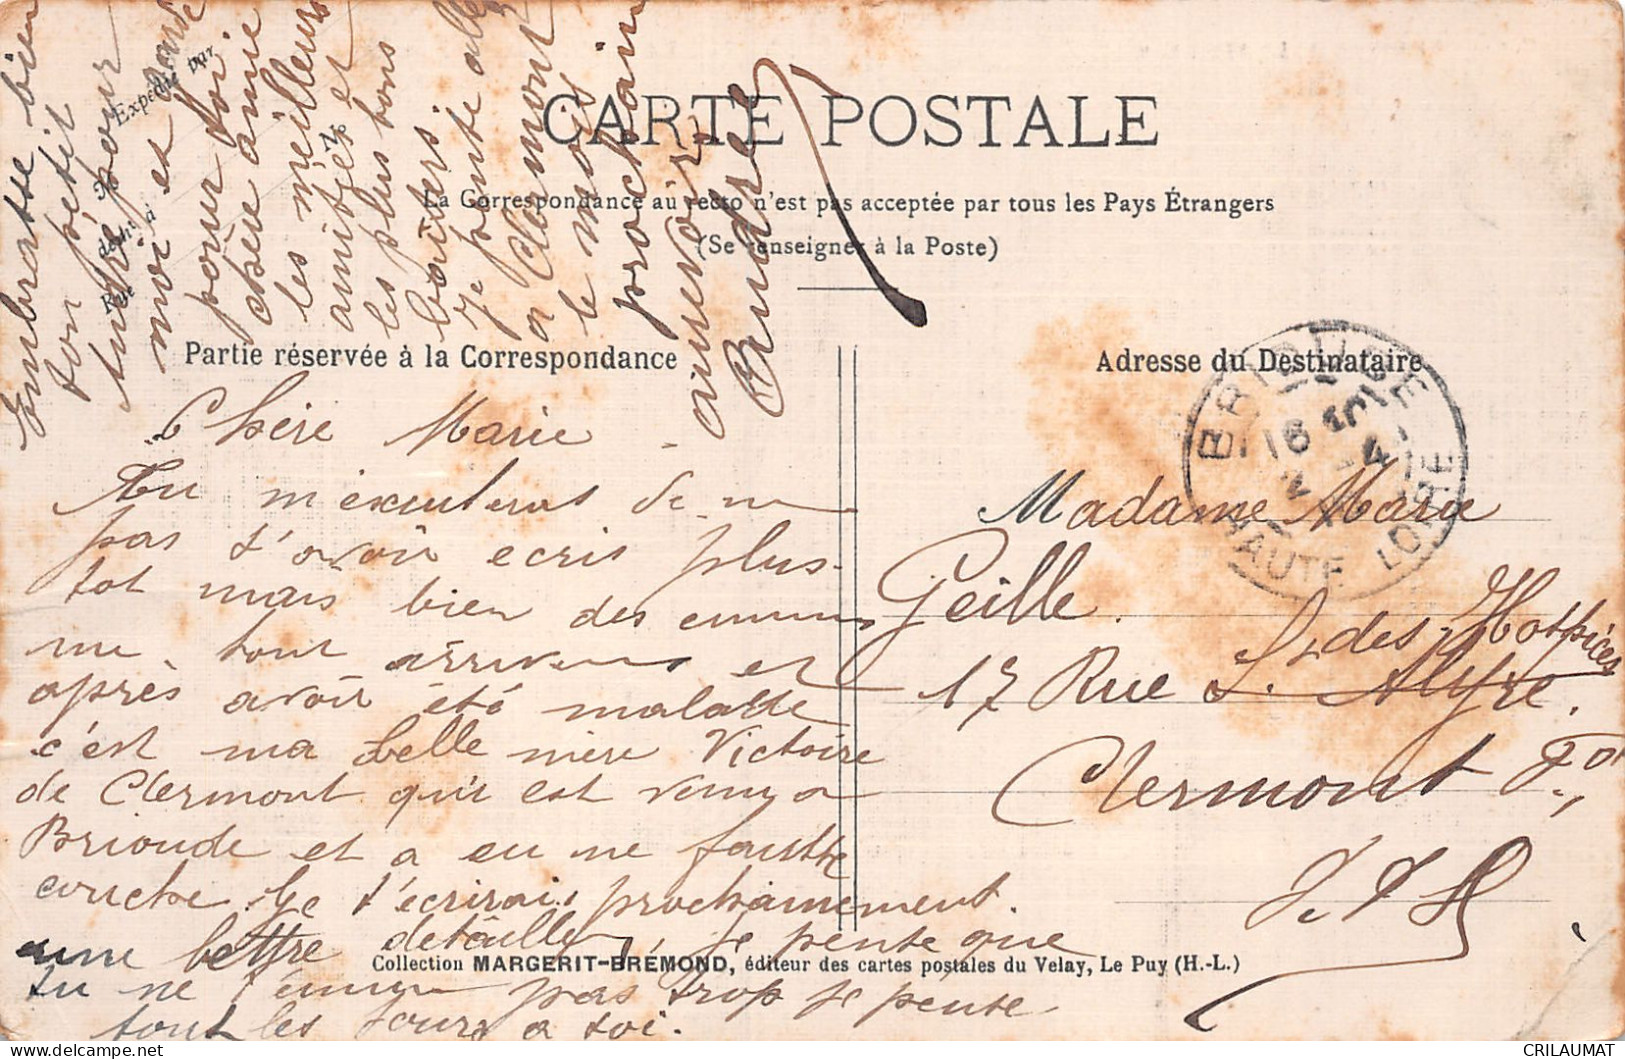 CARTE POSTALE
La Correspondance au recto n'est pas acceptée par tous les Pays Étrangers
(Se renseigner à la Poste)
Partie réservée à la Correspondance
Adresse du Destinataire
Expédié par
Rue
Chére Marie
Tu m'excuseras de ne
pas t'avoir ecris plus
tot mais bien des ennuis
me tout arrivons et
après avoir été malade
c'est ma belle mère Victoire
de Clermont qui est venu a
Brioude et a eu ne fausse
couche Je t'écrirais prochainement
une lettre detaillé, Je pense que
tu ne t'ennui pas trop je pense
tout les jours a toi.
Embrasse bien
ton petit
André pour
moi et garde
pour toi
chere amie
les meilleurs
amitiés et
les plus bons
baisers
Je pense aller
a Clermont
le mois
prochain
aurevoir
BRIOUDE
16
HAUTE LOIRE
Madame Marie
Geille
17 Rue St. Alyre.
des Hospices
Clermont Fd.,
Collection MARGERIT-BRÉMOND, éditeur des cartes postales du Velay, Le Puy (H.-L.)
CRILAUMAT